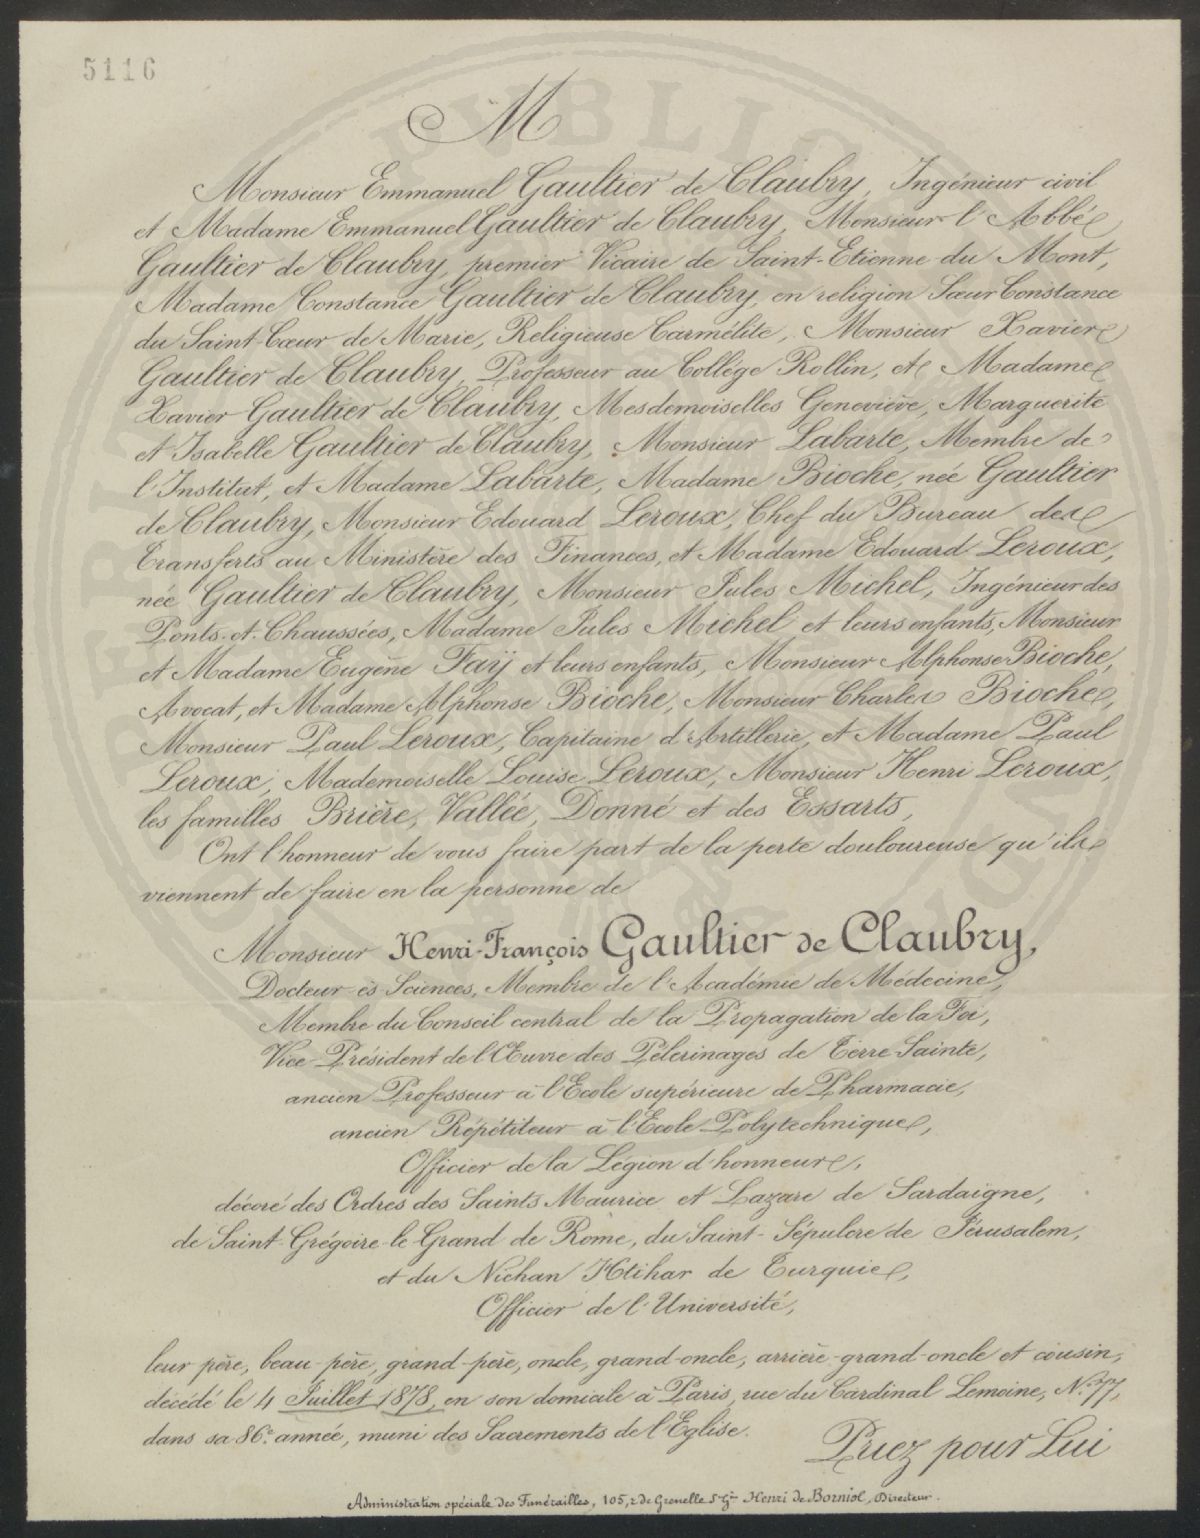 5116
M
Monsieur Emmanuel Gaultier de Claubry, Ingénieur civil
et Madame Emmanuel Gaultier de Claubry, Monsieur l'Abbé
Gaultier de Claubry, premier Vicaire de Saint-Etienne du Mont,
Madame Constance Gaultier de Claubry, en religion Sœur Constance
du Saint-Cœur de Marie, Religieuse Carmélite, Monsieur Xavier
Gaultier de Claubry, Professeur au Collége Rollin, et Madame
Xavier Gaultier de Claubry, Mesdemoiselles Geneviève, Marguerite
et Isabelle Gaultier de Claubry, Monsieur Labarte, Membre de
l'Institut, et Madame Labarte, Madame Bioche, née Gaultier
de Claubry, Monsieur Edouard Leroux, Chef du Bureau des
Transferts au Ministère des Finances, et Madame Edouard Leroux,
née Gaultier de Claubry, Monsieur Jules Michel, Ingénieur des
Ponts-et-Chaussées, Madame Jules Michel et leurs enfants, Monsieur
et Madame Eugène Faÿ et leurs enfants, Monsieur Alphonse Bioche,
Avocat, et Madame Alphonse Bioche, Monsieur Charles Bioche,
Monsieur Paul Leroux, Capitaine d'Artillerie, et Madame Paul
Leroux, Mademoiselle Louise Leroux, Monsieur Henri Leroux,
les familles Brière, Vallée, Donné et des Essarts,
Ont l'honneur de vous faire part de la perte douloureuse qu'ils
viennent de faire en la personne de
Monsieur Henri-François Gaultier de Claubry,
Docteur ès Sciences, Membre de l'Académie de Médecine,
Membre du Conseil central de la Propagation de la Foi,
Vice-Président de l'Œuvre des Pélerinages de Terre-Sainte,
ancien Professeur à l'Ecole supérieure de Pharmacie,
ancien Répétiteur à l'Ecole Polytechnique,
Officier de la Légion d'honneur,
décoré des Ordres des Saints Maurice et Lazare de Sardaigne,
de Saint-Grégoire-le-Grand de Rome, du Saint-Sépulcre de Jérusalem,
et du Nichan Iftihar de Turquie,
Officier de l'Université,
leur père, beau-père, grand-père, oncle, grand-oncle, arrière-grand-oncle et cousin,
décédé le 4 Juillet 1878, en son domicile à Paris, rue du Cardinal Lemoine, N° 77,
dans sa 86e année, muni des Sacrements de l'Eglise.
Priez pour Lui
Administration spéciale des Funérailles, 105, r. de Grenelle St Gn Henri de Borniol, Directeur.